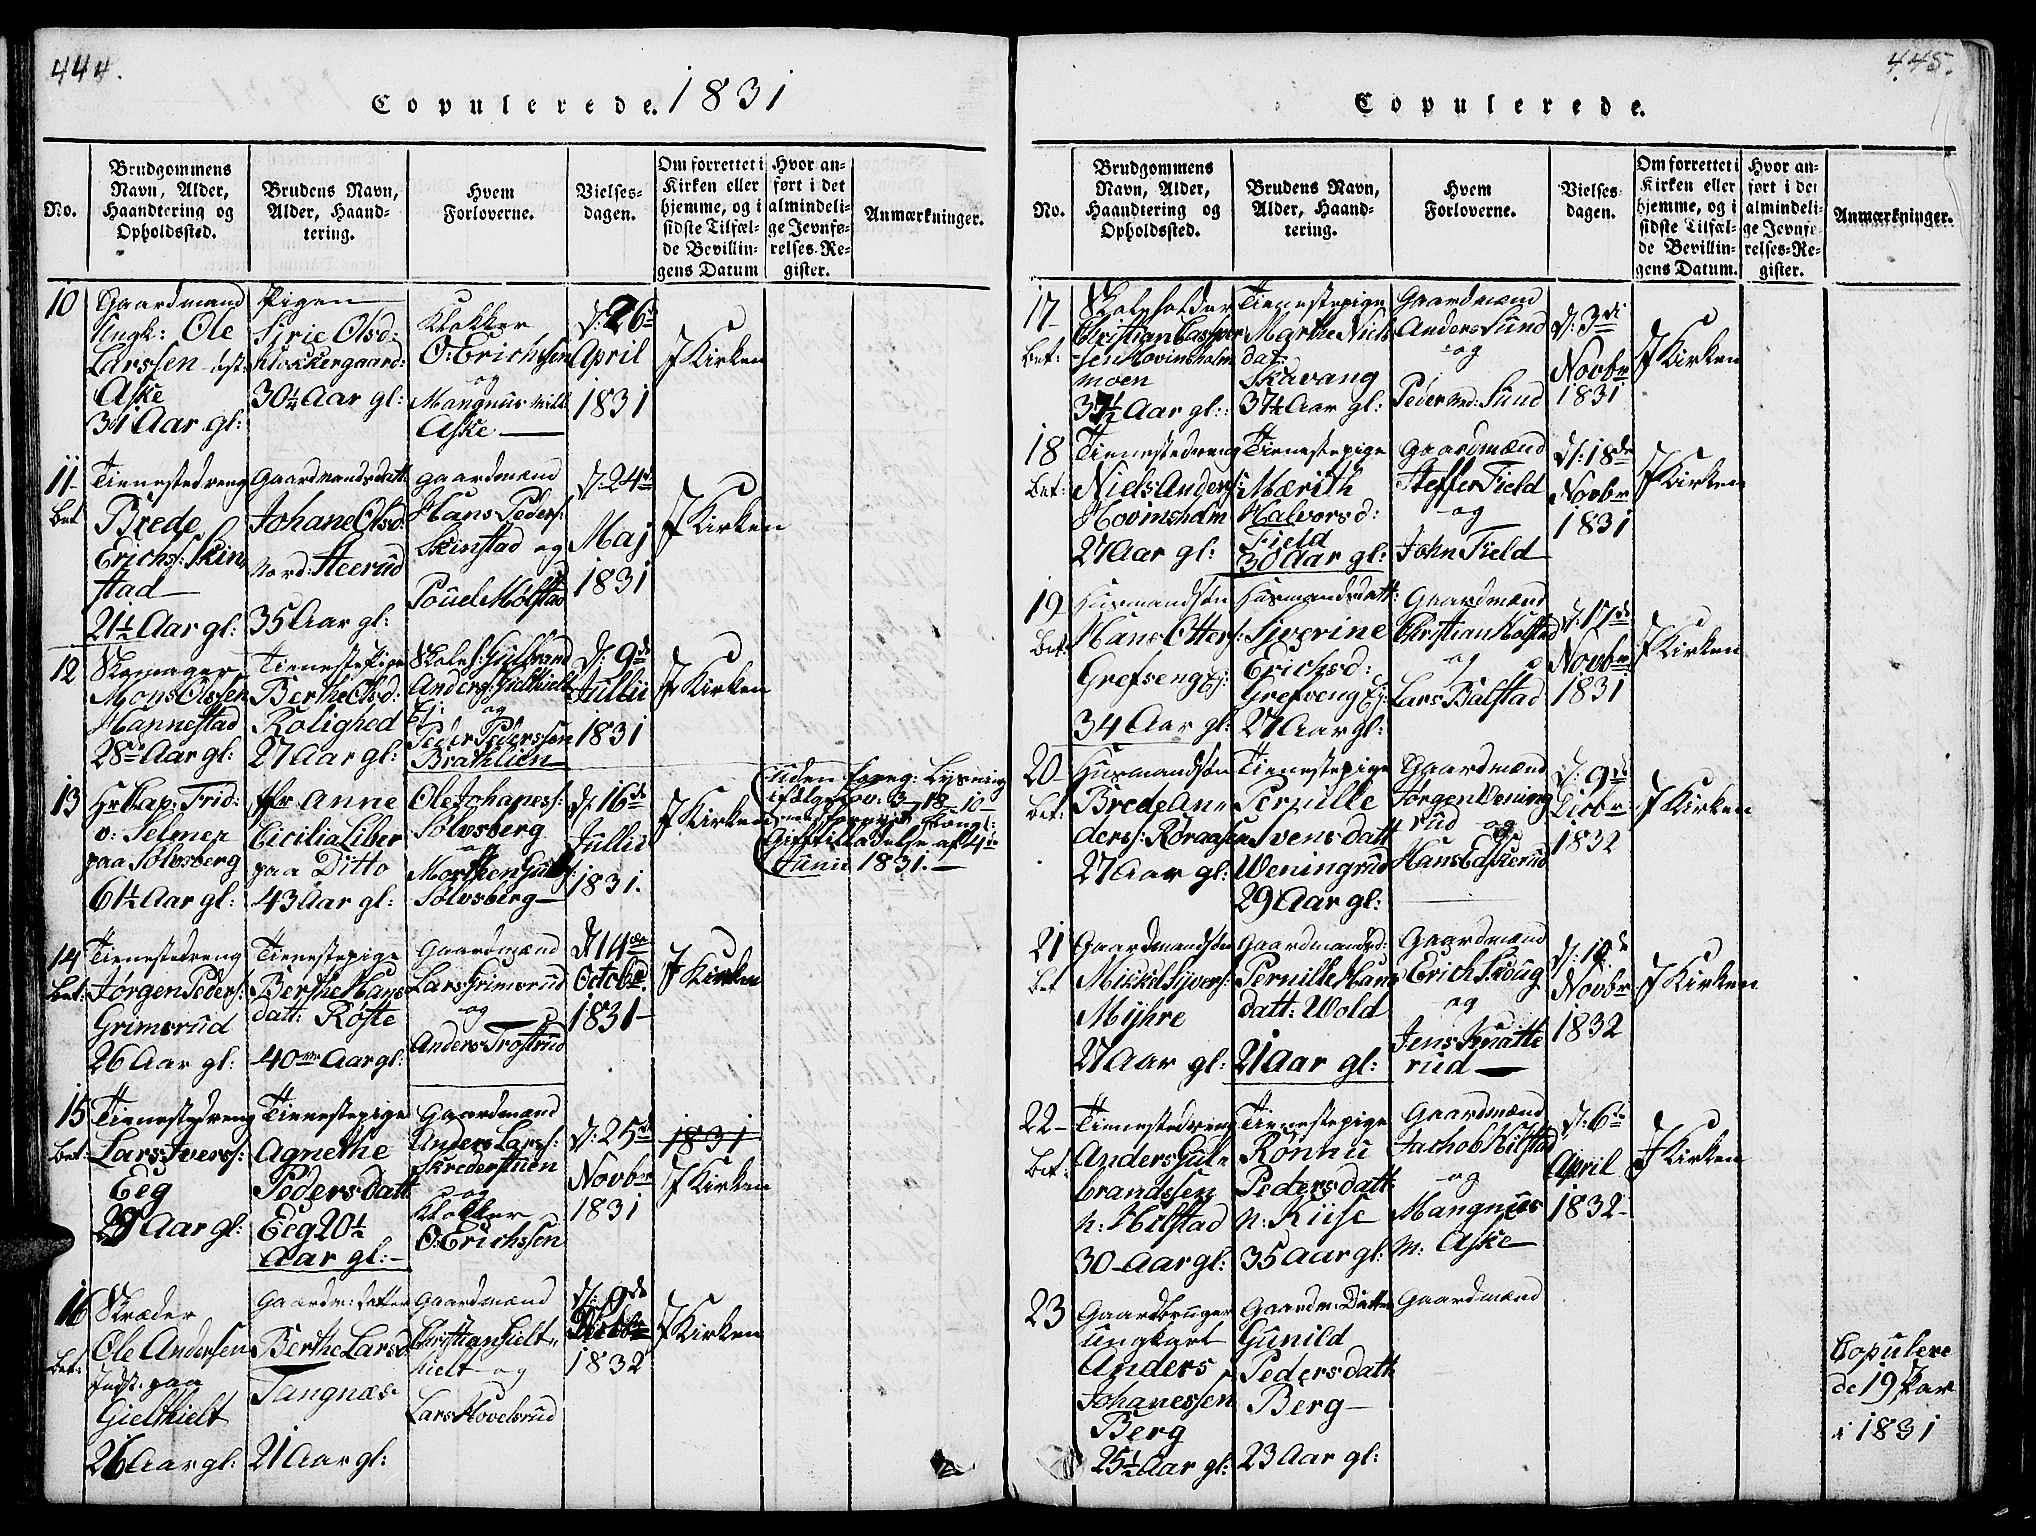 444.
Copulerede. 1831
No.
Brudgommens
Navn, Alder,
Haandtering og
Opholdssted.
Brudens Navn,
Alder, Haand-
tering.
Hvem
Forloverne.
Vielses-
dagen.
Om forrettet i
Kirken eller
hjemme, og i
sidste Tilfæl-
de Bevillin-
gens Datum
Hvor an-
ført i det
almindeli-
ge Jevnfø-
relses-Re-
gister.
Anmærkninger.
10
Gaardmand
Ungk: Ole
Larssen
Aske
31 Aar gl:
Pigen
Sirie Olsd:
Klokkergaard:
30¼ Aar gl:
Klokker
O: Erichssen
og
Mangnus
Aske
D: 26de
April
1831
I Kirken
11
Bet
Tienestedreng
Brede
Erichs: Skin
stad
21½ Aar gl:
Gaardmandsdatt
Johane Olsd:
nord: Steerud
35 Aar gl:
gaardmænd
Hans Peders:
Skinstad og
Pouel Mølstad
D: 24de
Maj
1831
I Kirken
12
Mons Olssen
Hannestad
28de Aar gl:
Tienestepige
Berthe Olsd:
Rolighed
27 Aar gl:
Skoleh: Gulbrand
Anders: Gielthielt
Ej: og
Peder Pederssen
Brathlien
D: 9de
Jullii
1831
I Kirken
13
Hr Cap: Frid:
v: Selmer
paa Sølvsberg
61½ Aar gl:
Fr Anne
Cicilia Liber
paa Ditto
43 Aar gl:
Ole Johaness:
Sølvsberg
og
Morthen
Sølvsberg
D: 16de
Jullii
1831.
I Kirken
Uden foreg: Lysning
ifølge
Giftetilladelse af 4de
Junii 1831.
14
Bet:
Tienestedreng
Jørgen Peders:
Grimsrud
26 Aar gl:
Tienestepige
Berthe Hans
datt: Røste
40 Aar gl:
Gaardmænd
Lars Grimsrud
og
Anders Trostrud
D: 14de
Octobr
1831
I Kirken
15
Bet:
Tienestedreng
Lars Ivers:
Eeg
29 Aar gl:
Tienestepige
Agnethe
Pedersdatt
Eeg 20½
Aar gl:
Gaardmænd
Anders Larss:
Skrederstuen
og
Klokker
O: Erichssen
D: 25de
Novbr
1831
1831
I Kirken
16
Bet:
Skræder
Ole Andersen
Indst: paa
Gielthielt
26 Aar gl:
Gaardm: datter
Berthe Larsd
Tangnæs
21 Aar gl:
Gaardmænd
Christian Gielt-
hielt og
Lars Hovelsrud
D: 9de
1832
I Kirken
445.
Copulerede.
No.
Brudgommens
Navn, Alder,
Haandtering og
Opholdssted.
Brudens Navn,
Alder, Haand-
tering.
Hvem
Forloverne.
Vielses-
dagen.
Om forrettet i
Kirken eller
hjemme, og i
sidste Tilfæl-
de Bevillin-
gens Datum.
Hvor an-
ført i det
almindeli-
ge Jevnfø-
relses-Re-
gister.
Anmærkninger.
17
Bet:
Skoleholder
Christian Casper
sen Hovinsholm
moen
37½ Aar gl:
Tienestepige
Marthe Niels
dat:
Skavang
37½ Aar gl:
Gaardmænd
Anders Sund
og
Peder Sund
D: 3di
Novbr
1831
I Kirken
18
Bet:
Tienestedreng
Niels Anders:
Hovinsholm
27 Aar gl:
Tienestepige
Mærith
Halvorsd:
Field
30 Aar gl:
Gaardmænd
Steffer Field
og
John Field
D: 18de
Novbr
1831
I Kirken
19
Bet:
Husmandsøn
Hans Otters:
Grefseng Ej:
34 Aar gl:
Husmandsdatt:
Siverine
Erichsd:
Grefseng Ej:
27 Aar gl:
Gaardmænd
Christian Kolstad
og
Lars Balstad
D: 17de
Novbr
1831
I Kirken
20
Bet:
Husmandsøn
Brede An-
derss: Røraasen
27 Aar gl:
Tienestepige
Pernille
Svensdatt
Weningrud
29 Aar gl:
Gaardmænd
Jørgen Wening
rud og
Hans Eskerud
D: 9de
Decbr
1832
I Kirken
21
Bet
Gaardmandsøn
Mikkel Syvers:
Myhre
27 Aar gl:
Gaardmandsd:
Pernille Hans
datt: Wold
21 Aar gl:
Gaardmænd
Erich Skoug
og
Jens Knatte
rud
D: 10de
Novbr
1832
I Kirken
22
Bet:
Tienestedreng
Anders Gul-
brandssen
n: Hilstad
30 Aar gl:
Tienestepige
Rønnu
Pedersdatt:
n: Kiise
35 Aar gl:
Gaardmænd
Jachob Hilstad
og
Mangnus
m: Aske
D: 6te
April
1832
I Kirken
23
Gaardbruger
ungkarl
Anders
Johanessen
Berg
25½ Aar gl:
Gaardm: Datter
Gunild
Pedersdatt
Berg
23 Aar gl:
Gaardmænd
Copulere
de 19 Par
i 1831